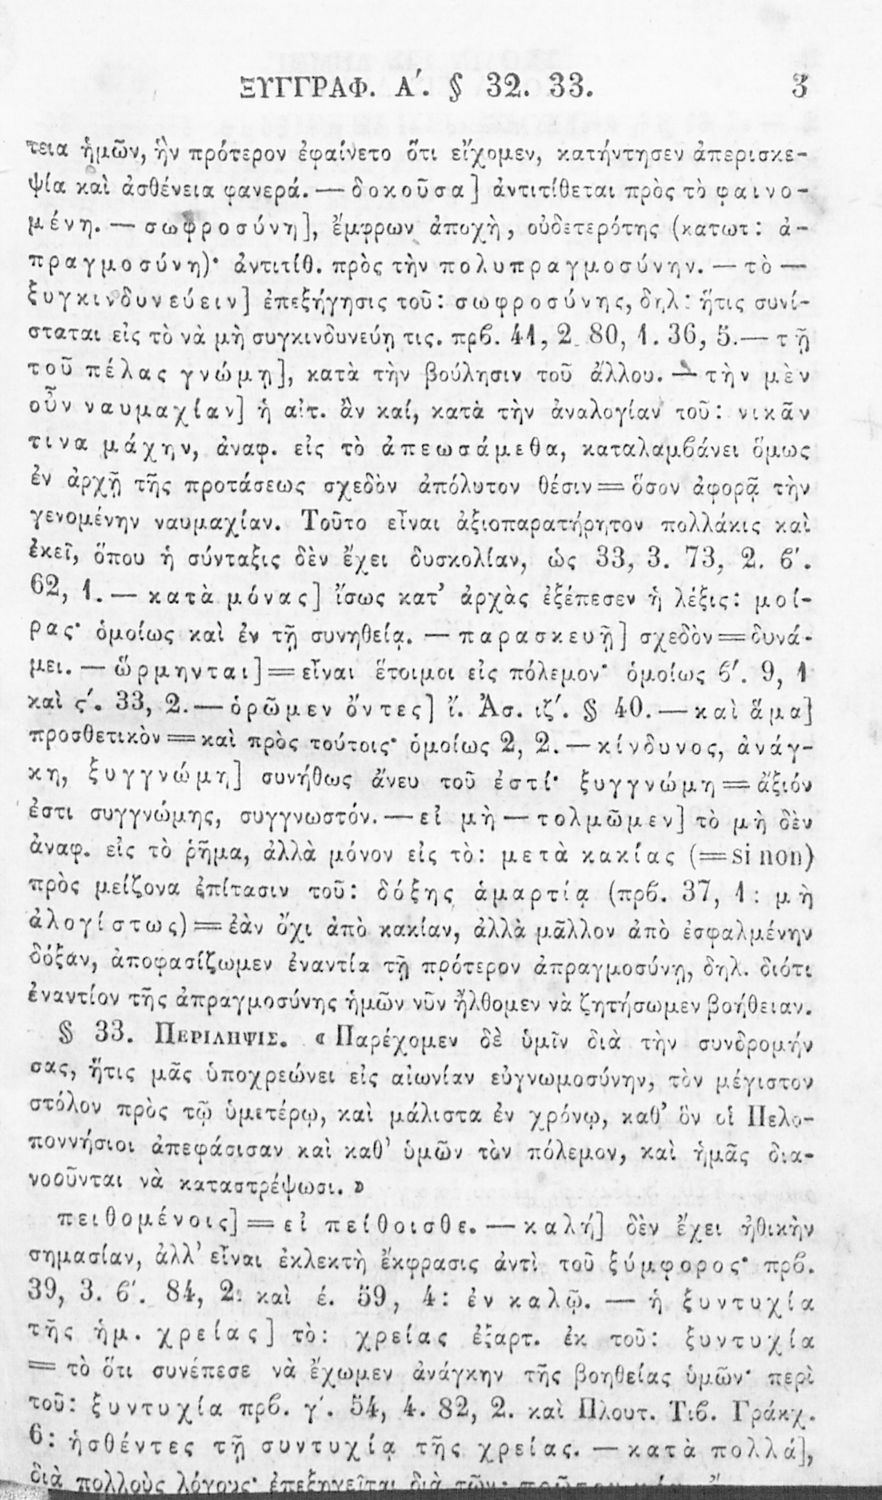 ΞΥΓΓΡΑΦ. Α΄. § 32. 33. 3
τεια ἡμῶν, ἣν πρότερον ἐφαίνετο ὅτι εἴχομεν, κατήντησεν ἀπερισκε-
ψία καὶ ἀσθένεια φανερά. — δοκοῦσα] ἀντιτίθεται πρὸς τὸ φαινο-
μένη. — σωφροσύνη], ἔμφρων ἀποχὴ, οὐδετερότης (κατωτ: ἀ-
πραγμοσύνη)· ἀντιτίθ. πρὸς τὴν πολυπραγμοσύνην. — τὸ —
ξυγκινδυνεύειν] ἐπεξήγησις τοῦ: σωφροσύνης, δηλ: ἥτις συνί-
σταται εἰς τὸ νὰ μὴ συγκινδυνεύῃ τις. πρϐ. 41, 2. 80, 1. 36, 5.— τῇ
τοῦ πέλας γνώμῃ], κατὰ τὴν βούλησιν τοῦ ἄλλου. — τὴν μὲν
οὖν ναυμαχίαν] ἡ αἰτ. ἂν καί, κατὰ τὴν ἀναλογίαν τοῦ: νικᾶν
τινα μάχην, ἀναφ. εἰς τὸ ἀπεωσάμεθα, καταλαμϐάνει ὅμως
ἐν ἀρχῇ τῆς προτάσεως σχεδὸν ἀπόλυτον θέσιν = ὅσον ἀφορᾷ τὴν
γενομένην ναυμαχίαν. Τοῦτο εἶναι ἀξιοπαρατήρητον πολλάκις καὶ
ἐκεῖ, ὅπου ἡ σύνταξις δὲν ἔχει δυσκολίαν, ὡς 33, 3. 73, 2. ϐ΄.
62, 1. — κατὰ μόνας] ἴσως κατ’ ἀρχὰς ἐξέπεσεν ἡ λέξις: μοί-
ρας· ὁμοίως καὶ ἐν τῇ συνηθείᾳ. — παρασκευῇ] σχεδὸν = δυνά-
μει. — ὥρμηνται] = εἶναι ἕτοιμοι εἰς πόλεμον· ὁμοίως ϐ΄. 9, 1
καὶ ς΄. 33, 2. — ὁρῶμεν ὄντες] ἴ. Ἀσ. ιζ΄. § 40. — καὶ ἅμα]
προσθετικὸν = καὶ πρὸς τούτοις· ὁμοίως 2, 2. — κίνδυνος, ἀνάγ-
κη, ξυγγνώμη] συνήθως ἄνευ τοῦ ἐστί· ξυγγνώμη = ἄξιόν
ἐστι συγγνώμης, συγγνωστόν. — εἰ μὴ — τολμῶμεν] τὸ μὴ δὲν
ἀναφ. εἰς τὸ ῥῆμα, ἀλλὰ μόνον εἰς τὸ: μετὰ κακίας (= si non)
πρὸς μείζονα ἐπίτασιν τοῦ: δόξης ἁμαρτίᾳ (πρϐ. 37, 1: μὴ
ἀλογίστως) = ἐὰν ὄχι ἀπὸ κακίαν, ἀλλὰ μᾶλλον ἀπὸ ἐσφαλμένην
δόξαν, ἀποφασίζωμεν ἐναντία τῇ πρότερον ἀπραγμοσύνῃ, δηλ. διότι
ἐναντίον τῆς ἀπραγμοσύνης ἡμῶν νῦν ἤλθομεν νὰ ζητήσωμεν βοήθειαν.
§ 33. ΠΕΡΙΛΗΨΙΣ. « Παρέχομεν δὲ ὑμῖν διὰ τὴν συνδρομήν
σας, ἥτις μᾶς ὑποχρεώνει εἰς αἰωνίαν εὐγνωμοσύνην, τὸν μέγιστον
στόλον πρὸς τῷ ὑμετέρῳ, καὶ μάλιστα ἐν χρόνῳ, καθ’ ὃν οἱ Πελο-
ποννήσιοι ἀπεφάσισαν καὶ καθ’ ὑμῶν τὸν πόλεμον, καὶ ἡμᾶς δια-
νοοῦνται νὰ καταστρέψωσι. »
πειθομένοις] = εἰ πείθοισθε. — καλή] δὲν ἔχει ἠθικὴν
σημασίαν, ἀλλ’ εἶναι ἐκλεκτὴ ἔκφρασις ἀντὶ τοῦ ξύμφορος· πρϐ.
39, 3. ϐ΄. 84, 2. καὶ έ. 59, 4: ἐν καλῷ. — ἡ ξυντυχία
τῆς ἡμ. χρείας] τὸ: χρείας ἐξαρτ. ἐκ τοῦ: ξυντυχία
= τὸ ὅτι συνέπεσε νὰ ἔχωμεν ἀνάγκην τῆς βοηθείας ὑμῶν· περὶ
τοῦ: ξυντυχία πρϐ. γ΄. 54, 4. 82, 2. καὶ Πλουτ. Τιϐ. Γράκχ.
6: ἡσθέντες τῇ συντυχίᾳ τῆς χρείας. — κατὰ πολλά],
διὰ πολλοὺς λόγους· ἐπεξηγεῖται διὰ τῶν: